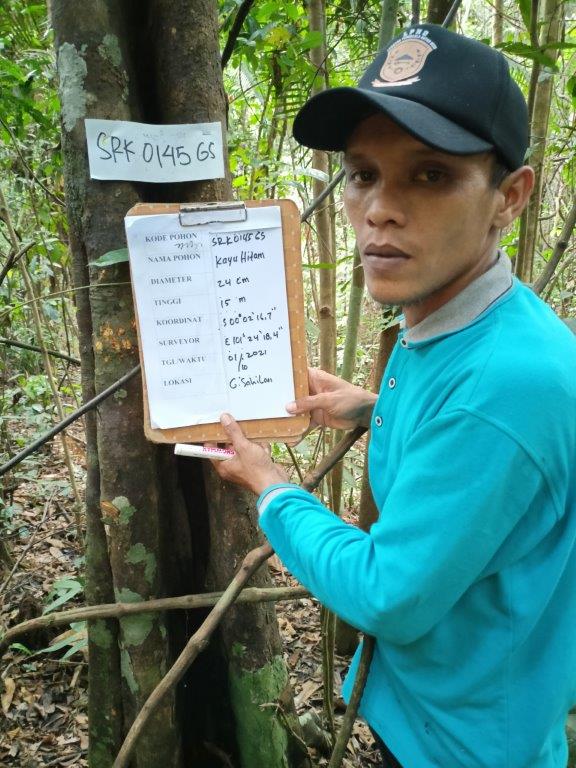 SRK 0145 GS
KODE POHON SRK0145GS
NAMA POHON Kayu Hitam
DIAMETER 24 cm
TINGGI 15 m
KOORDINAT S 00° 02' 16.7"
SURVEYOR E 101° 24' 18.4"
TGL/WAKTU 01/10 2021
LOKASI G. Sahilan